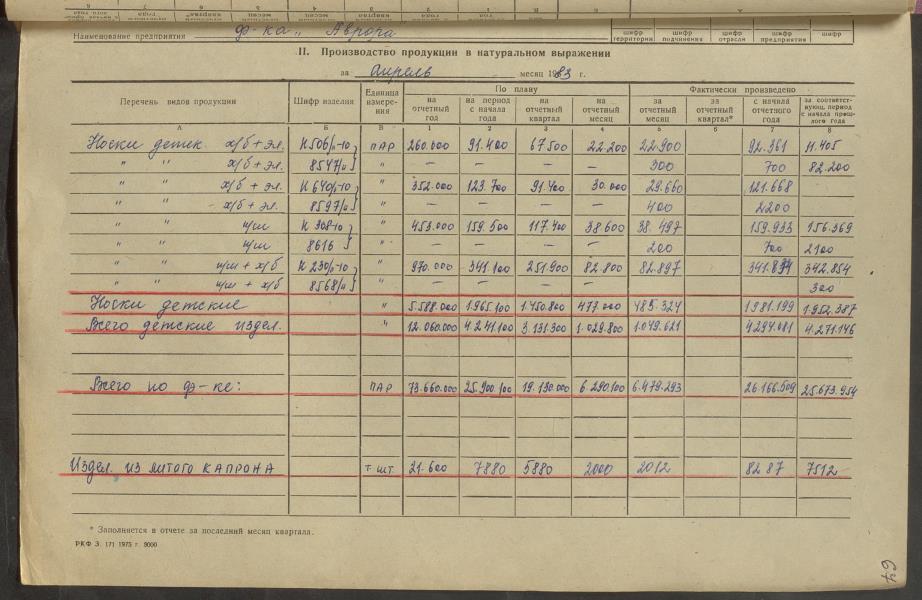 Наименование предприятия ф-ка „Аврора
шифр территории шифр подчинения шифр отрасли шифр предприятия шифр
II. Производство продукции в натуральном выражении
за апрель месяц 1983 г.
Перечень видов продукции Шифр изделия Единица измерения По плану Фактически произведено
на отчетный год на период с начала года на отчетный квартал на отчетный месяц за отчетный месяц за отчетный квартал* с начала отчетного года за соответствующ. период с начала прошлого года
А Б В 1 2 3 4 5 6 7 8
Носки детск. х/б + эл. пар 260.000 91.400 67.500 22.200 22.900 92.361 11.405
" " х/б + эл. 8547/0 " — — — — 300 700 82.200
" " х/б + эл. " 352.000 123.700 91.400 30.000 29.660 121.668
" " х/б + эл. 8597/0 " — — — — 400 2200
" " п/ш " 453.000 159.500 117.400 38600 38.497 159.933 156.369
" " п/ш 8616 " — — — — 200 700 2100
" " п/ш + х/б " 970.000 341.100 251.900 82.800 82.897 342.854
" " п/ш + х/б 8568/0 300
Носки детские " 5.588.000 1.965.100 1.450.800 477.000 485.324 1.981.199 1.952.387
Всего детские издел. " 12.060.000 4.241.100 3.131.300 1.029.800 1.049.621 4.294.081 4.271.146
Всего по ф-ке: пар 73.660.000 25.900.100 19.130.000 6.290.100 6.479.293 26.166.509 25.673.954
Издел. из литого капрона т. шт. 21.600 7880 5880 2000 2012 8287 7512
* Заполняется в отчете за последний месяц квартала.
РКФ З. 171 1975 г. 9000
64